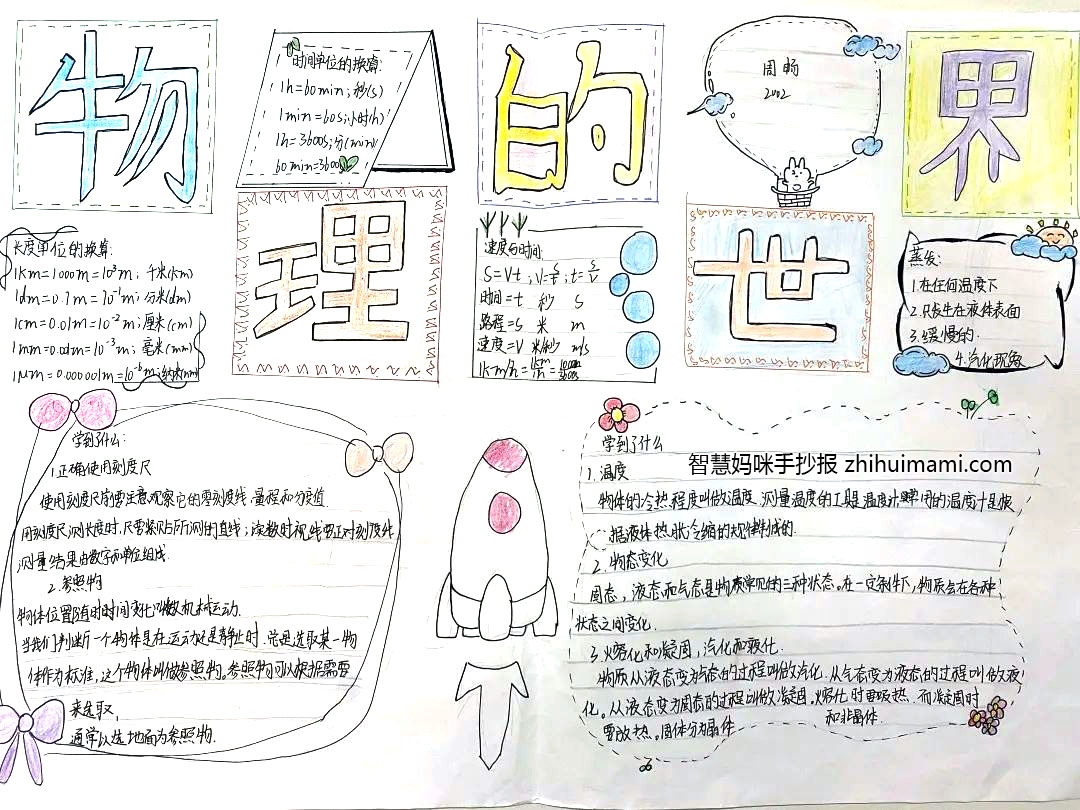 物
理
的
世
界
时间单位的换算:
1h=60min; 秒(s)
1min=60s; 小时(h)
1h=3600s; 分(min)
60min=3600s
周畅
2002
长度单位的换算:
1km=1000m=10³m; 千米(km)
1dm=0.1m=10⁻¹m; 分米(dm)
1cm=0.01m=10⁻²m; 厘米(cm)
1mm=0.001m=10⁻³m; 毫米(mm)
1μm=0.000001m=10⁻⁶m; 纳米
速度与时间:
S=Vt; V=s/t; t=s/v
时间=t 秒 s
路程=s 米 m
速度=V 米/秒 m/s
1km/h=1km/1h=1000m/3600s
蒸发:
1.在任何温度下
2.只发生在液体表面
3.缓慢的
4.汽化现象
学到了什么:
1.正确使用刻度尺
使用刻度尺前要注意观察它的零刻度线.量程和分度值.
用刻度尺测长度时.尺要紧贴所测的直线;读数时视线要正对刻度线
测量结果由数字和单位组成.
2.参照物
物体位置随时间变化叫做机械运动.
当我们判断一个物体是在运动还是静止时.总是选取某一物
体作为标准,这个物体叫做参照物。参照物可以根据需要
来选取,
通常以选地面为参照物.
学到了什么
智慧妈咪手抄报 zhihuimami.com
1.温度
物体的冷热程度叫做温度.测量温度的工具是温度计.常用的温度计是根
据液体热胀冷缩的规律制成的.
2.物态变化
固态,液态和气态是物质常见的三种状态。在一定条件下,物质会在各种
状态之间变化.
3.熔化和凝固,汽化和液化.
物质从液态变为气态的过程叫做汽化.从气态变为液态的过程叫做液
化。从液态变为固态的过程叫做凝固.熔化时要吸热.而凝固时
要放热。固体分为晶体和非晶体.